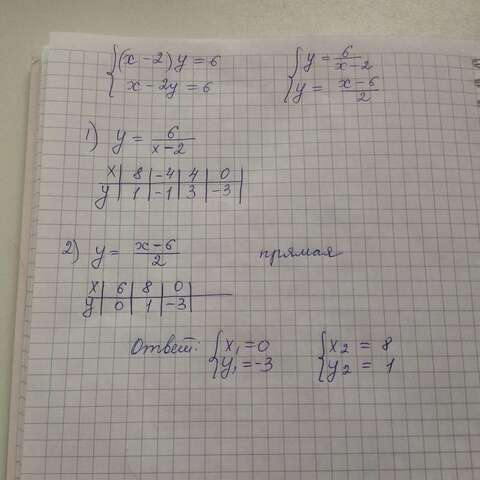 {(x-2)y=6 {y=6/(x-2)
x-2y=6 y=(x-6)/2
1) y=6/(x-2)
x | 8 | -4 | 4 | 0 |
y | 1 | -1 | 3 | -3 |
2) y=(x-6)/2 прямая
x | 6 | 8 | 0 |
y | 0 | 1 | -3 |
Ответ: {x₁=0 {x₂=8
y₁=-3 y₂=1